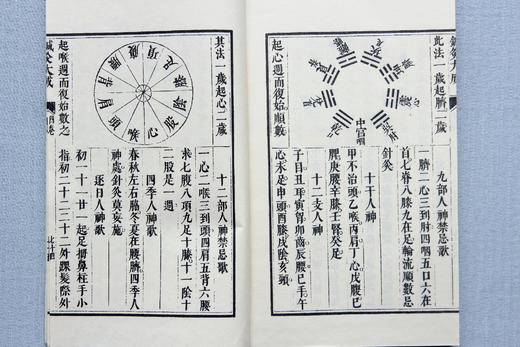 此法一歲起臍二歲
起心週而復始順數
中宮咽
九部人神禁忌歌
一臍二心三到肘四咽五口六在
首七脊八膝九在足輪流順數忌
針灸
十干人神
甲不治頭乙喉丙肩丁心戊腹己
脾庚腰辛膝壬腎癸足
十二支人神
子目丑耳寅胷卯齒辰腰巳手午
心未足申頭酉膝戌陰亥頸
其法一歲起心二歲
起喉週而復始數之
心
喉
頭
肩
背
腰
腹
項
足
膝
陰
股
十二部人神禁忌歌
一心二喉三到頭四肩五背六腰
求七腹八項九足十膝十一陰十
二股是一週
四季人神歌
春秋左右脇冬夏在腰臍四季人
神處針灸莫妄施
逐日人神歌
初一十一廿一起足拇鼻柱手小
指初二十二二十二外踝髮際外